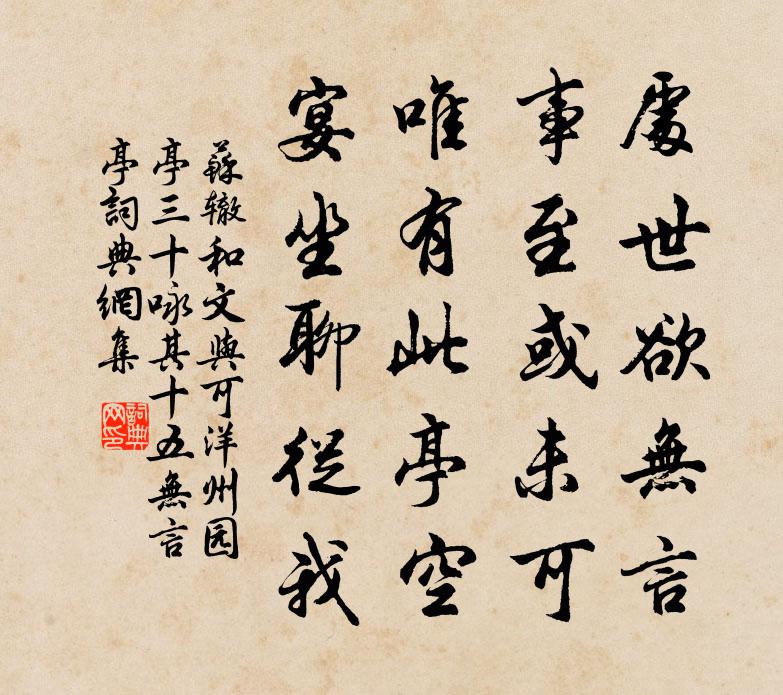 處世欲無言
事至或未可
唯有此亭空
宴坐聊從我
蘇辙和文與可洋州园
亭三十咏其十五無言
亭詞典網集
詞典
网印